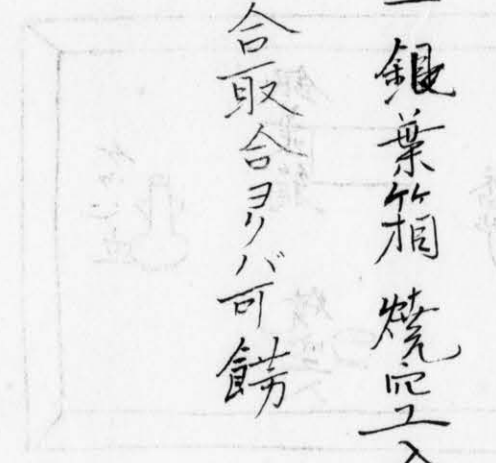 一 銀葉箱 焼空入
合取合ヨリバ可餝